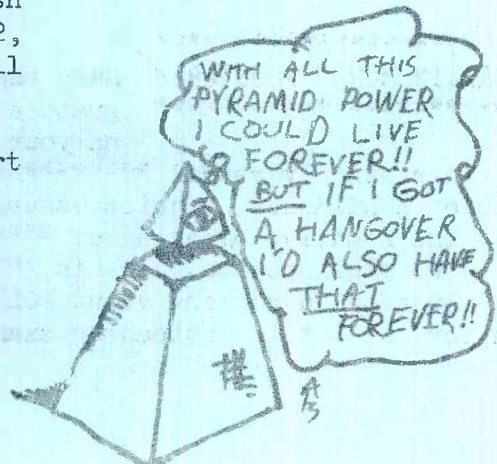 sh
ll
rt
WITH ALL THIS
PYRAMID POWER
I COULD LIVE
FOREVER!!
BUT IF I GOT
A HANGOVER
I'D ALSO HAVE
THAT
FOREVER!!